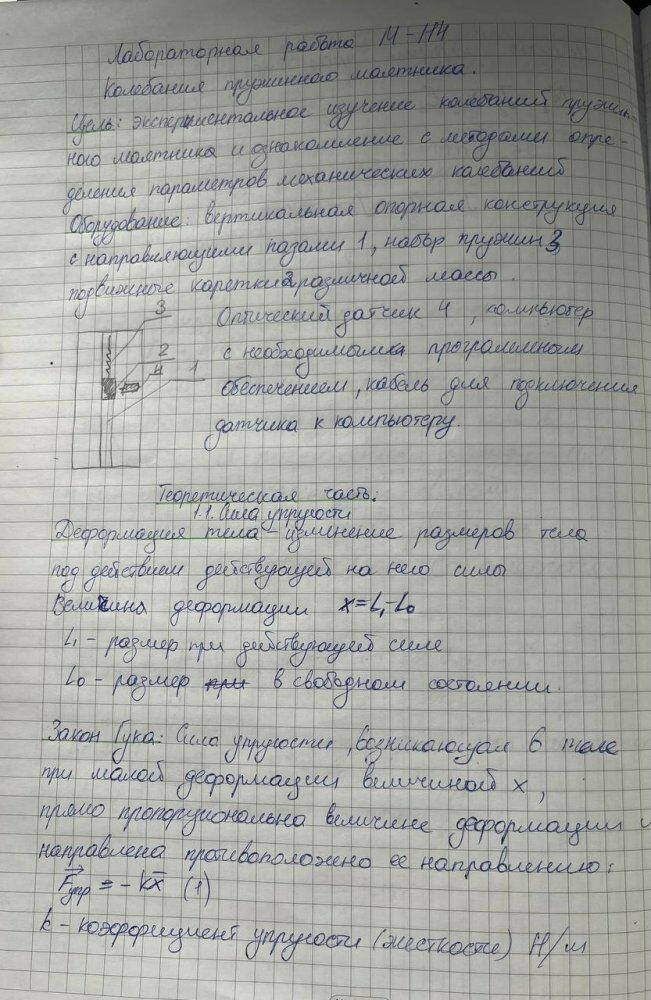 Лабораторная работа М-НЧ
Колебания пружинного маятника.
Цель: экспериментальное изучение колебаний пружин-
ного маятника и ознакомление с методами опре-
деления параметров механических колебаний
Оборудование: вертикальная опорная конструкция
с направляющими пазами 1, набор пружин 3,
подвижные каретки 2 различной массы.
Оптический датчик 4, компьютер
с необходимым программным
обеспечением, кабель для подключения
датчика к компьютеру.
3
2
4 1
Теоретическая часть:
1.1. Сила упругости
Деформация тела - изменение размеров тела
под действием действующей на него силы
Величина деформации x = L₁-L₀
L₁ - размер при действующей силе
L₀ - размер при в свободном состоянии.
Закон Гука: Сила упругости, возникающая в теле
при малой деформации величиной x,
прямо пропорциональна величине деформации и
направлена противоположено ее направлению:
F⃗упр = - kx̄ (1)
k - коэффициент упругости (жесткости) Н/м